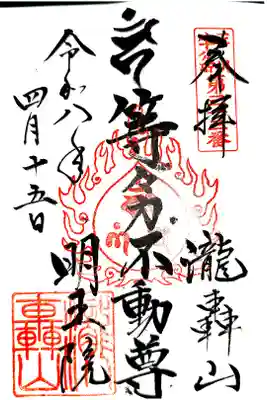 奉拝
瀧轟山
等々力不動尊
明王院
令和八年
四月十五日